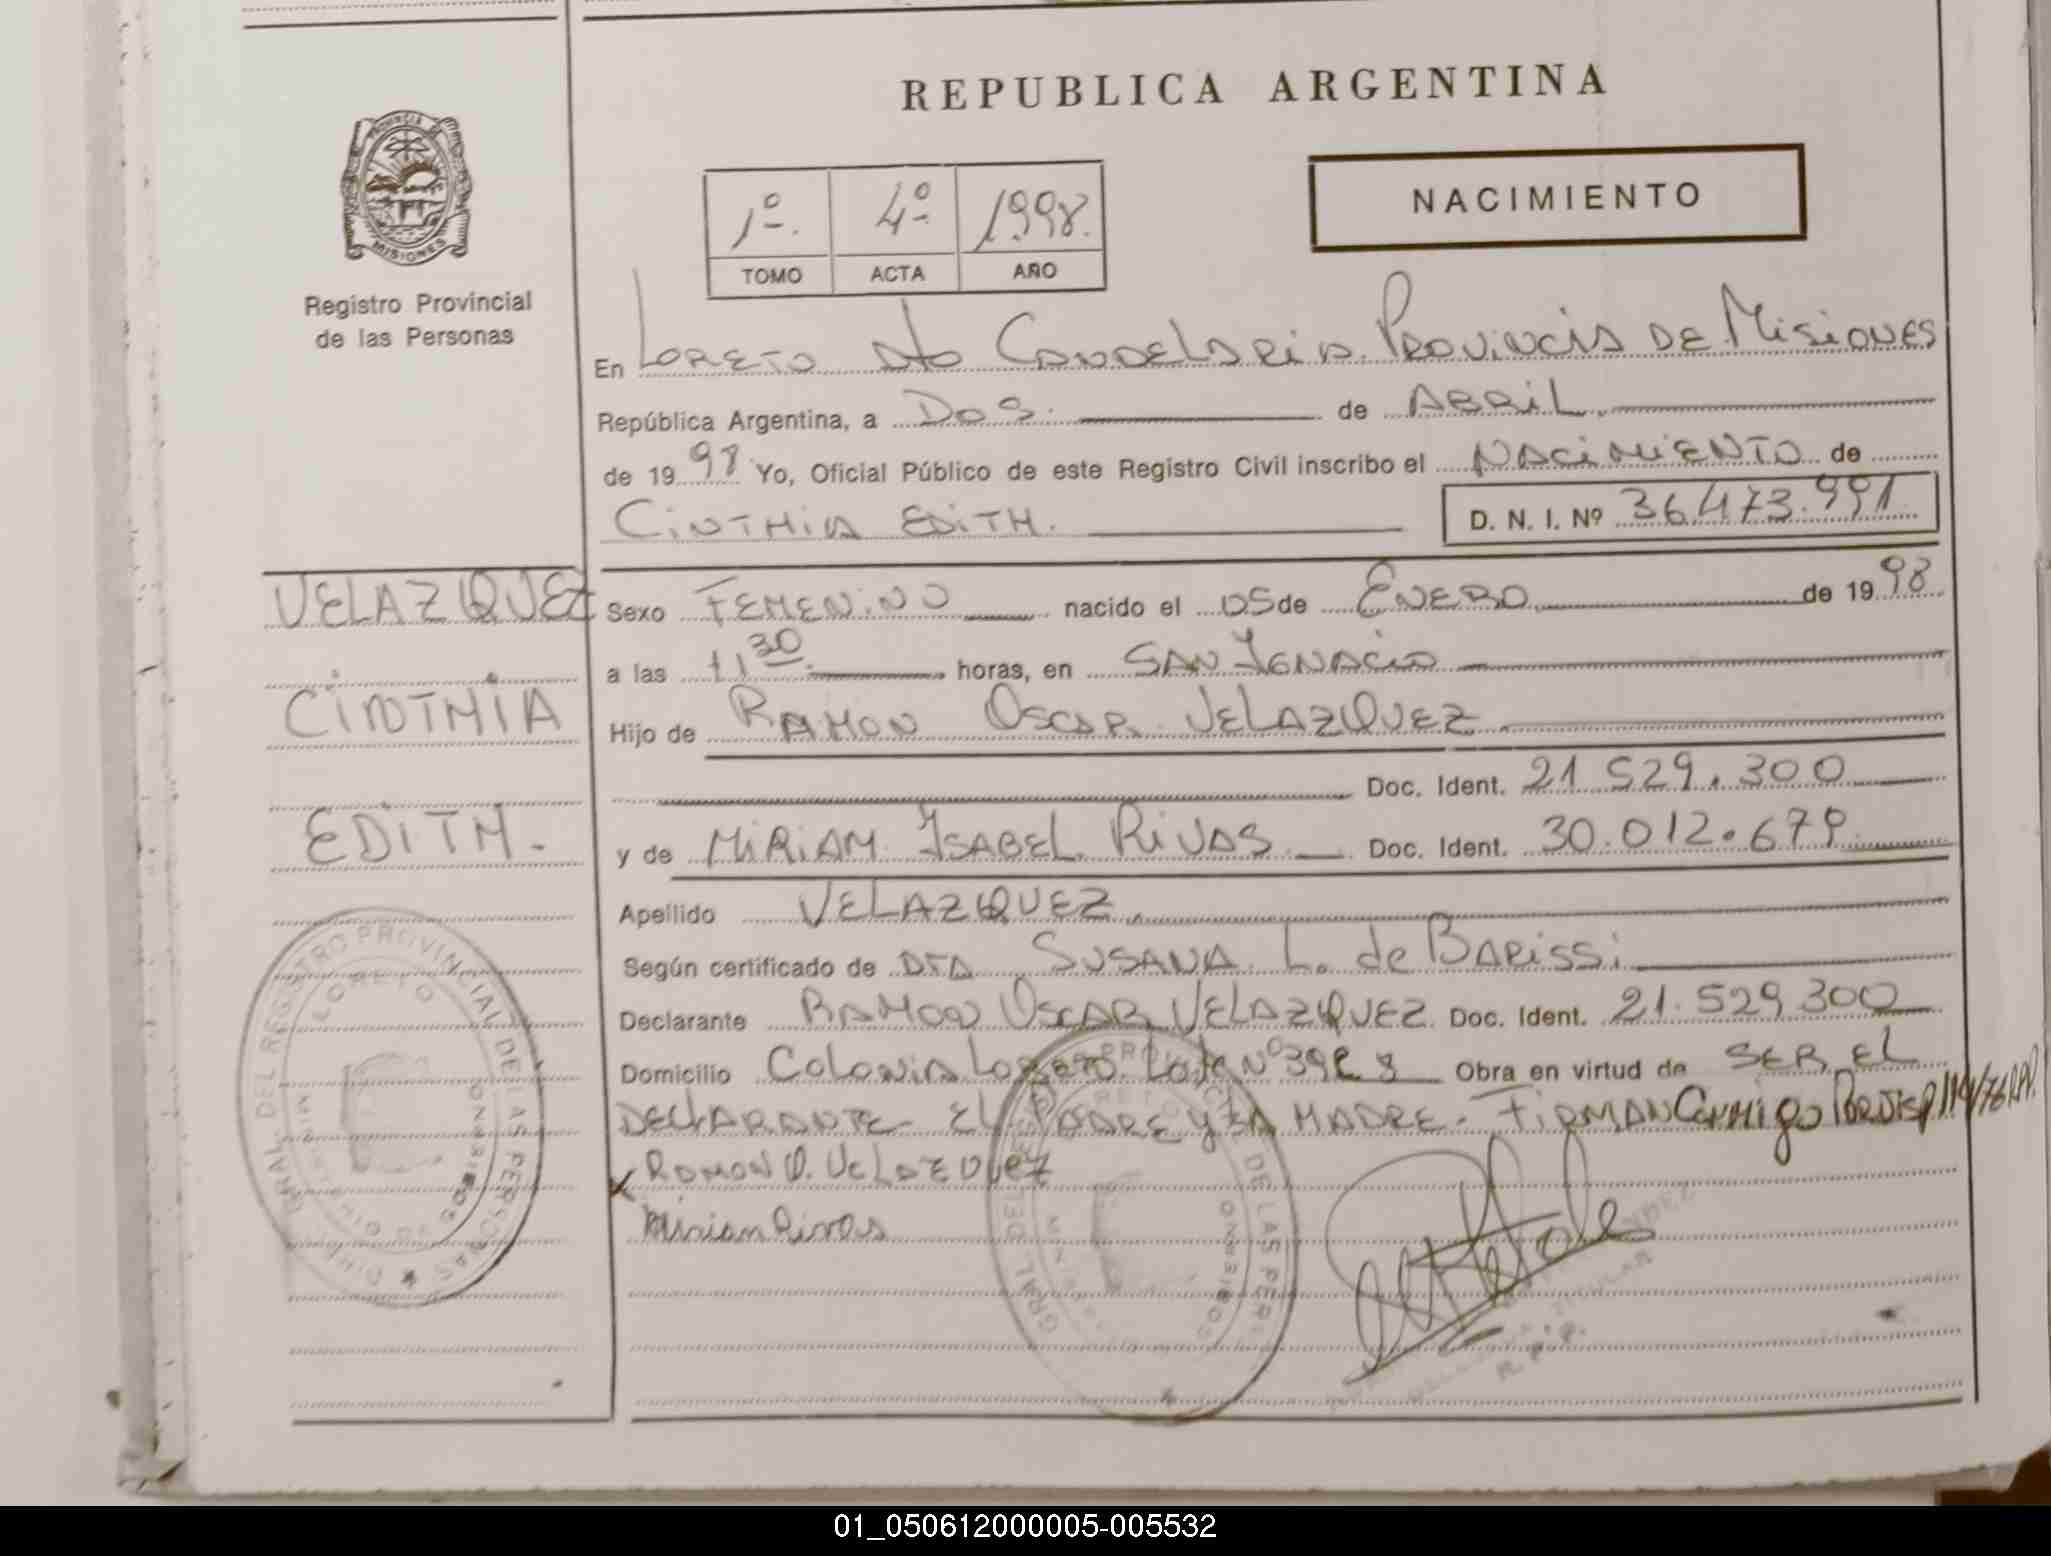 REPUBLICA ARGENTINA
PROVINCIA DE
MISIONES
Registro Provincial
de las Personas
1º. 4º 1998.
TOMO ACTA AÑO
NACIMIENTO
En LORETO Dto CANDELARIA. PROVINCIA DE MISIONES
República Argentina, a DOS. de ABRIL.
de 1998 Yo, Oficial Público de este Registro Civil inscribo el NACIMIENTO de
CINTHIA EDITH. D. N. I. Nº 36.473.991.
VELAZQUEZ
CINTHIA
EDITH.
Sexo FEMENINO nacido el 05 de ENERO de 1998.
a las 11 30 horas, en SAN IGNACIO
Hijo de RAMON OSCAR VELAZQUEZ.
Doc. Ident. 21.529.300
y de MIRIAM ISABEL RIVAS Doc. Ident. 30.012.679
Apellido VELAZQUEZ.
Según certificado de DRA SUSANA L. de BARISSI
Declarante RAMON OSCAR VELAZQUEZ. Doc. Ident. 21.529.300
Domicilio Colonia Loreto. Lote Nº Obra en virtud de SER EL
DECLARANTE EL PADRE Y LA MADRE. FIRMAN Conmigo
x RAMON O. VELAZQUEZ
Mirian Rivas
GRAL. DEL REGISTRO PROVINCIAL DE LAS PERSONAS
LORETO